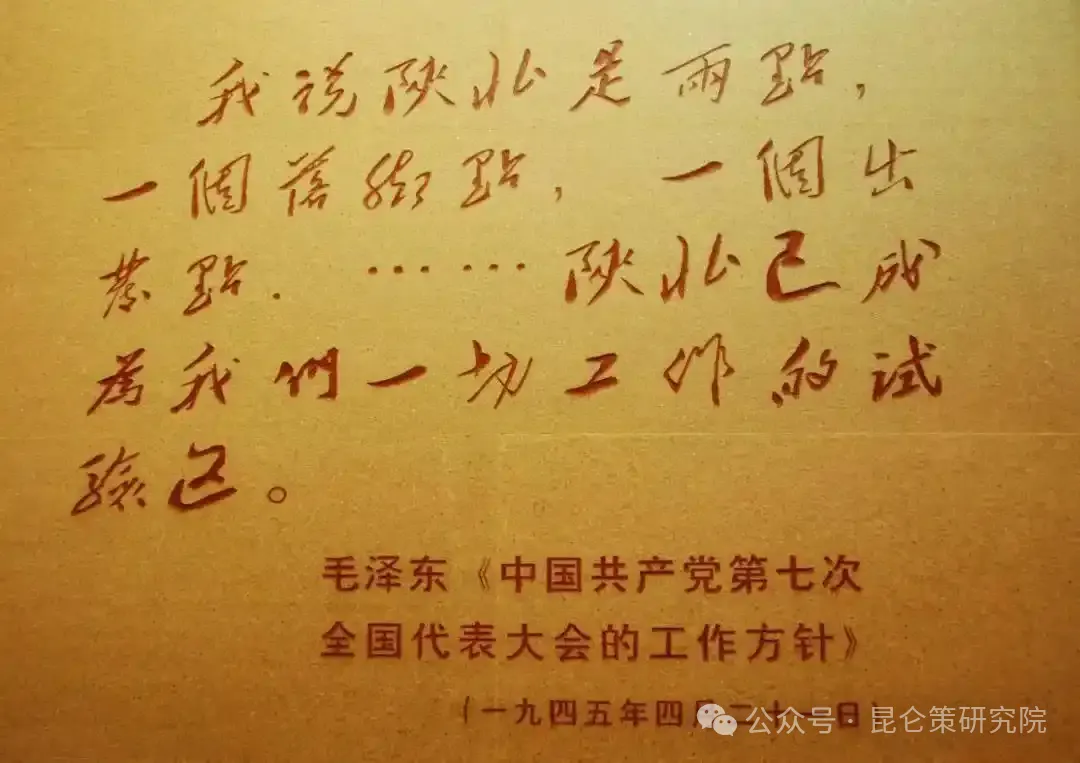 我说陝北是兩點，
一個落脚點，一個出
發點．……陝北已成
為我們一切工作的试
驗区。
毛泽东《中国共产党第七次
全国代表大会的工作方针》
（一九四五年四月二十一日）
公众号·昆仑策研究院